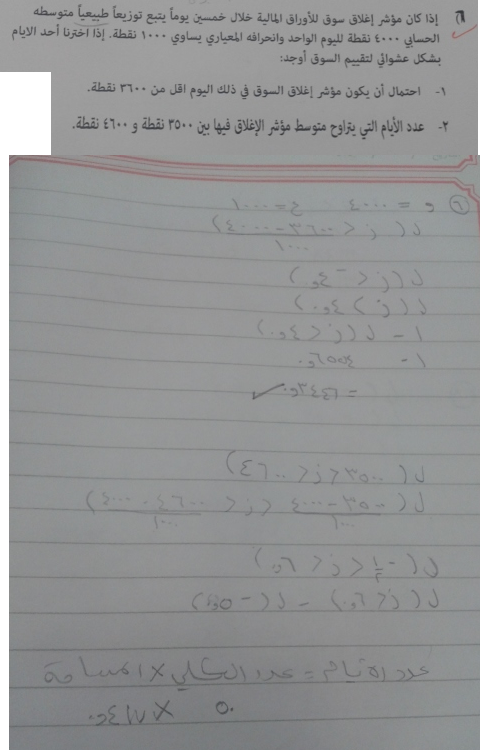 ٦ إذا كان مؤشر إغلاق سوق للأوراق المالية خلال خمسين يوماً يتبع توزيعاً طبيعياً متوسطه
الحسابي ٤٠٠٠ نقطة لليوم الواحد وانحرافه المعياري يساوي ١٠٠٠ نقطة. إذا اخترنا أحد الايام
بشكل عشوائي لتقييم السوق أوجد:
١- احتمال أن يكون مؤشر إغلاق السوق في ذلك اليوم اقل من ٣٦٠٠ نقطة.
٢- عدد الأيام التي يتراوح متوسط مؤشر الإغلاق فيها بين ٣٥٠٠ نقطة و ٤٦٠٠ نقطة.
٦ و = ٤٠٠٠ ع = ١٠٠٠
ل ( ز < ٣٦٠٠ - ٤٠٠٠ )
١٠٠٠
ل ( ز < -٤,٠ )
ل ( ز > ٤,٠ )
١ - ل ( ز < ٤,٠ )
١ - ٦٥٥٤,٠
= ٣٤٤٦,٠
ل ( ٣٥٠٠ < ز < ٤٦٠٠ )
ل ( ٣٥٠٠ - ٤٠٠٠ < ز < ٤٦٠٠ - ٤٠٠٠ )
١٠٠٠ ١٠٠٠
ل ( -١/٢ < ز < ٦,٠ )
ل ( ز < ٦,٠ ) - ل ( -٥,٠ )
عدد الأيام = عدد الكلي × المساحة
٥٠ × ٤١٧٢,٠